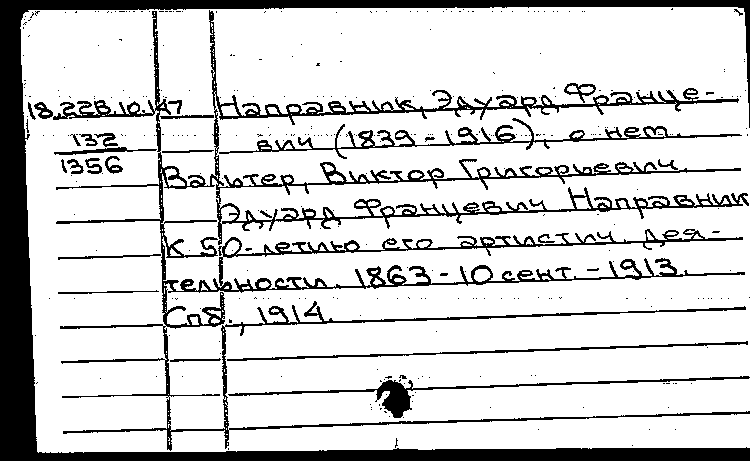 18.22В.10.147 Направник, Эдуард Франце-
132 вич (1839-1916), о нем.
1356
Вальтер, Виктор Григорьевич.
Эдуард Францевич Направник
К 50-летию его артистич. дея-
тельности. 1863-10 сент.-1913.
Спб., 1914.